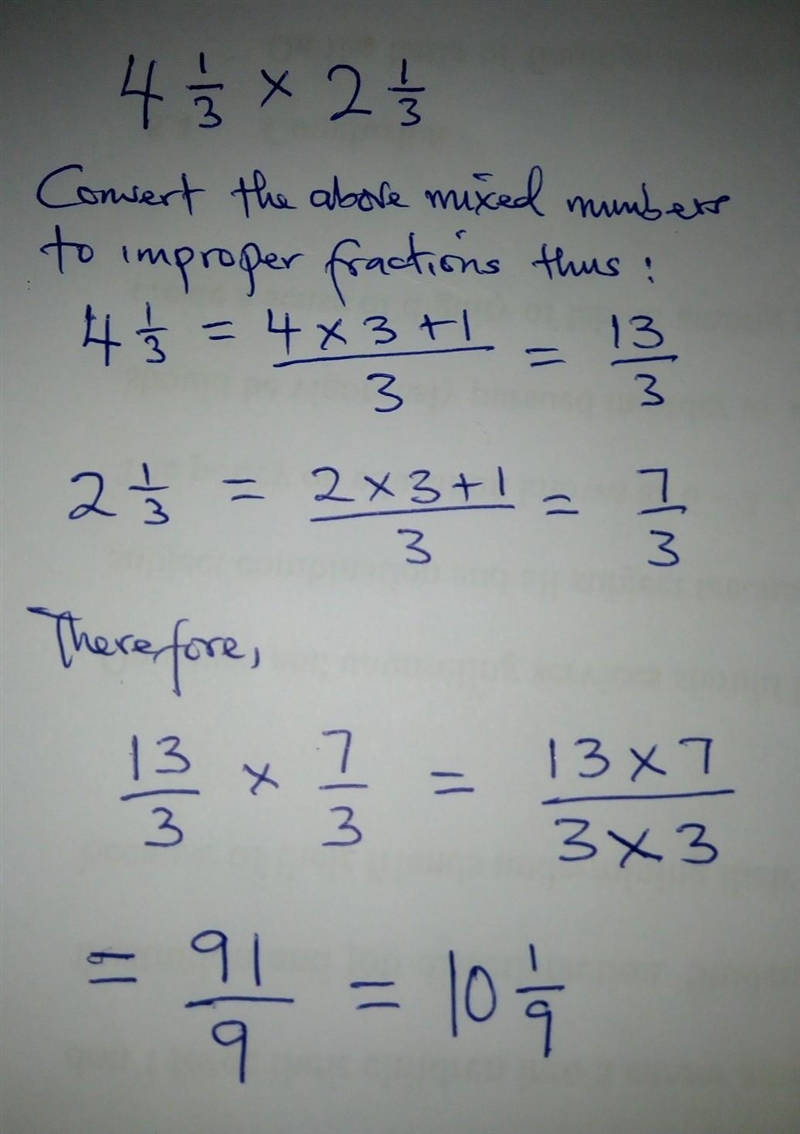 4 1/3 × 2 1/3
Convert the above mixed numbers
to improper fractions thus:
4 1/3 = (4 × 3 + 1)/3 = 13/3
2 1/3 = (2 × 3 + 1)/3 = 7/3
Therefore,
13/3 × 7/3 = (13 × 7)/(3 × 3)
= 91/9 = 10 1/9